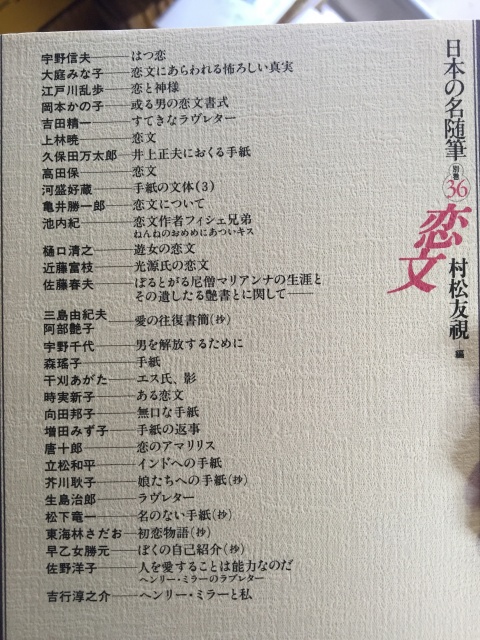 日本の名随筆
別巻
36
恋文
村松友視
編
宇野信夫――はつ恋
大庭みな子――恋文にあらわれる怖ろしい真実
江戸川乱歩――恋と神様
岡本かの子――或る男の恋文書式
吉田精一――すてきなラヴレター
上林暁――恋文
久保田万太郎――井上正夫におくる手紙
高田保――恋文
河盛好蔵――手紙の文体(3)
亀井勝一郎――恋文について
池内紀――恋文作者フィシェ兄弟
ねんねのおめめにあついキス
樋口清之――遊女の恋文
近藤富枝――光源氏の恋文
佐藤春夫――ぽるとがる尼僧マリアンナの生涯と
その遺したる艶書とに関して――
三島由紀夫
阿部艶子――愛の往復書簡(抄)
宇野千代――男を解放するために
森瑤子――手紙
干刈あがた――エス氏、影
時実新子――ある恋文
向田邦子――無口な手紙
増田みず子――手紙の返事
唐十郎――恋のアマリリス
立松和平――インドへの手紙
芥川耿子――娘たちへの手紙(抄)
生島治郎――ラヴレター
松下竜一――名のない手紙(抄)
東海林さだお――初恋物語(抄)
早乙女勝元――ぼくの自己紹介(抄)
佐野洋子――人を愛することは能力なのだ
ヘンリー・ミラーのラブレター
吉行淳之介――ヘンリー・ミラーと私